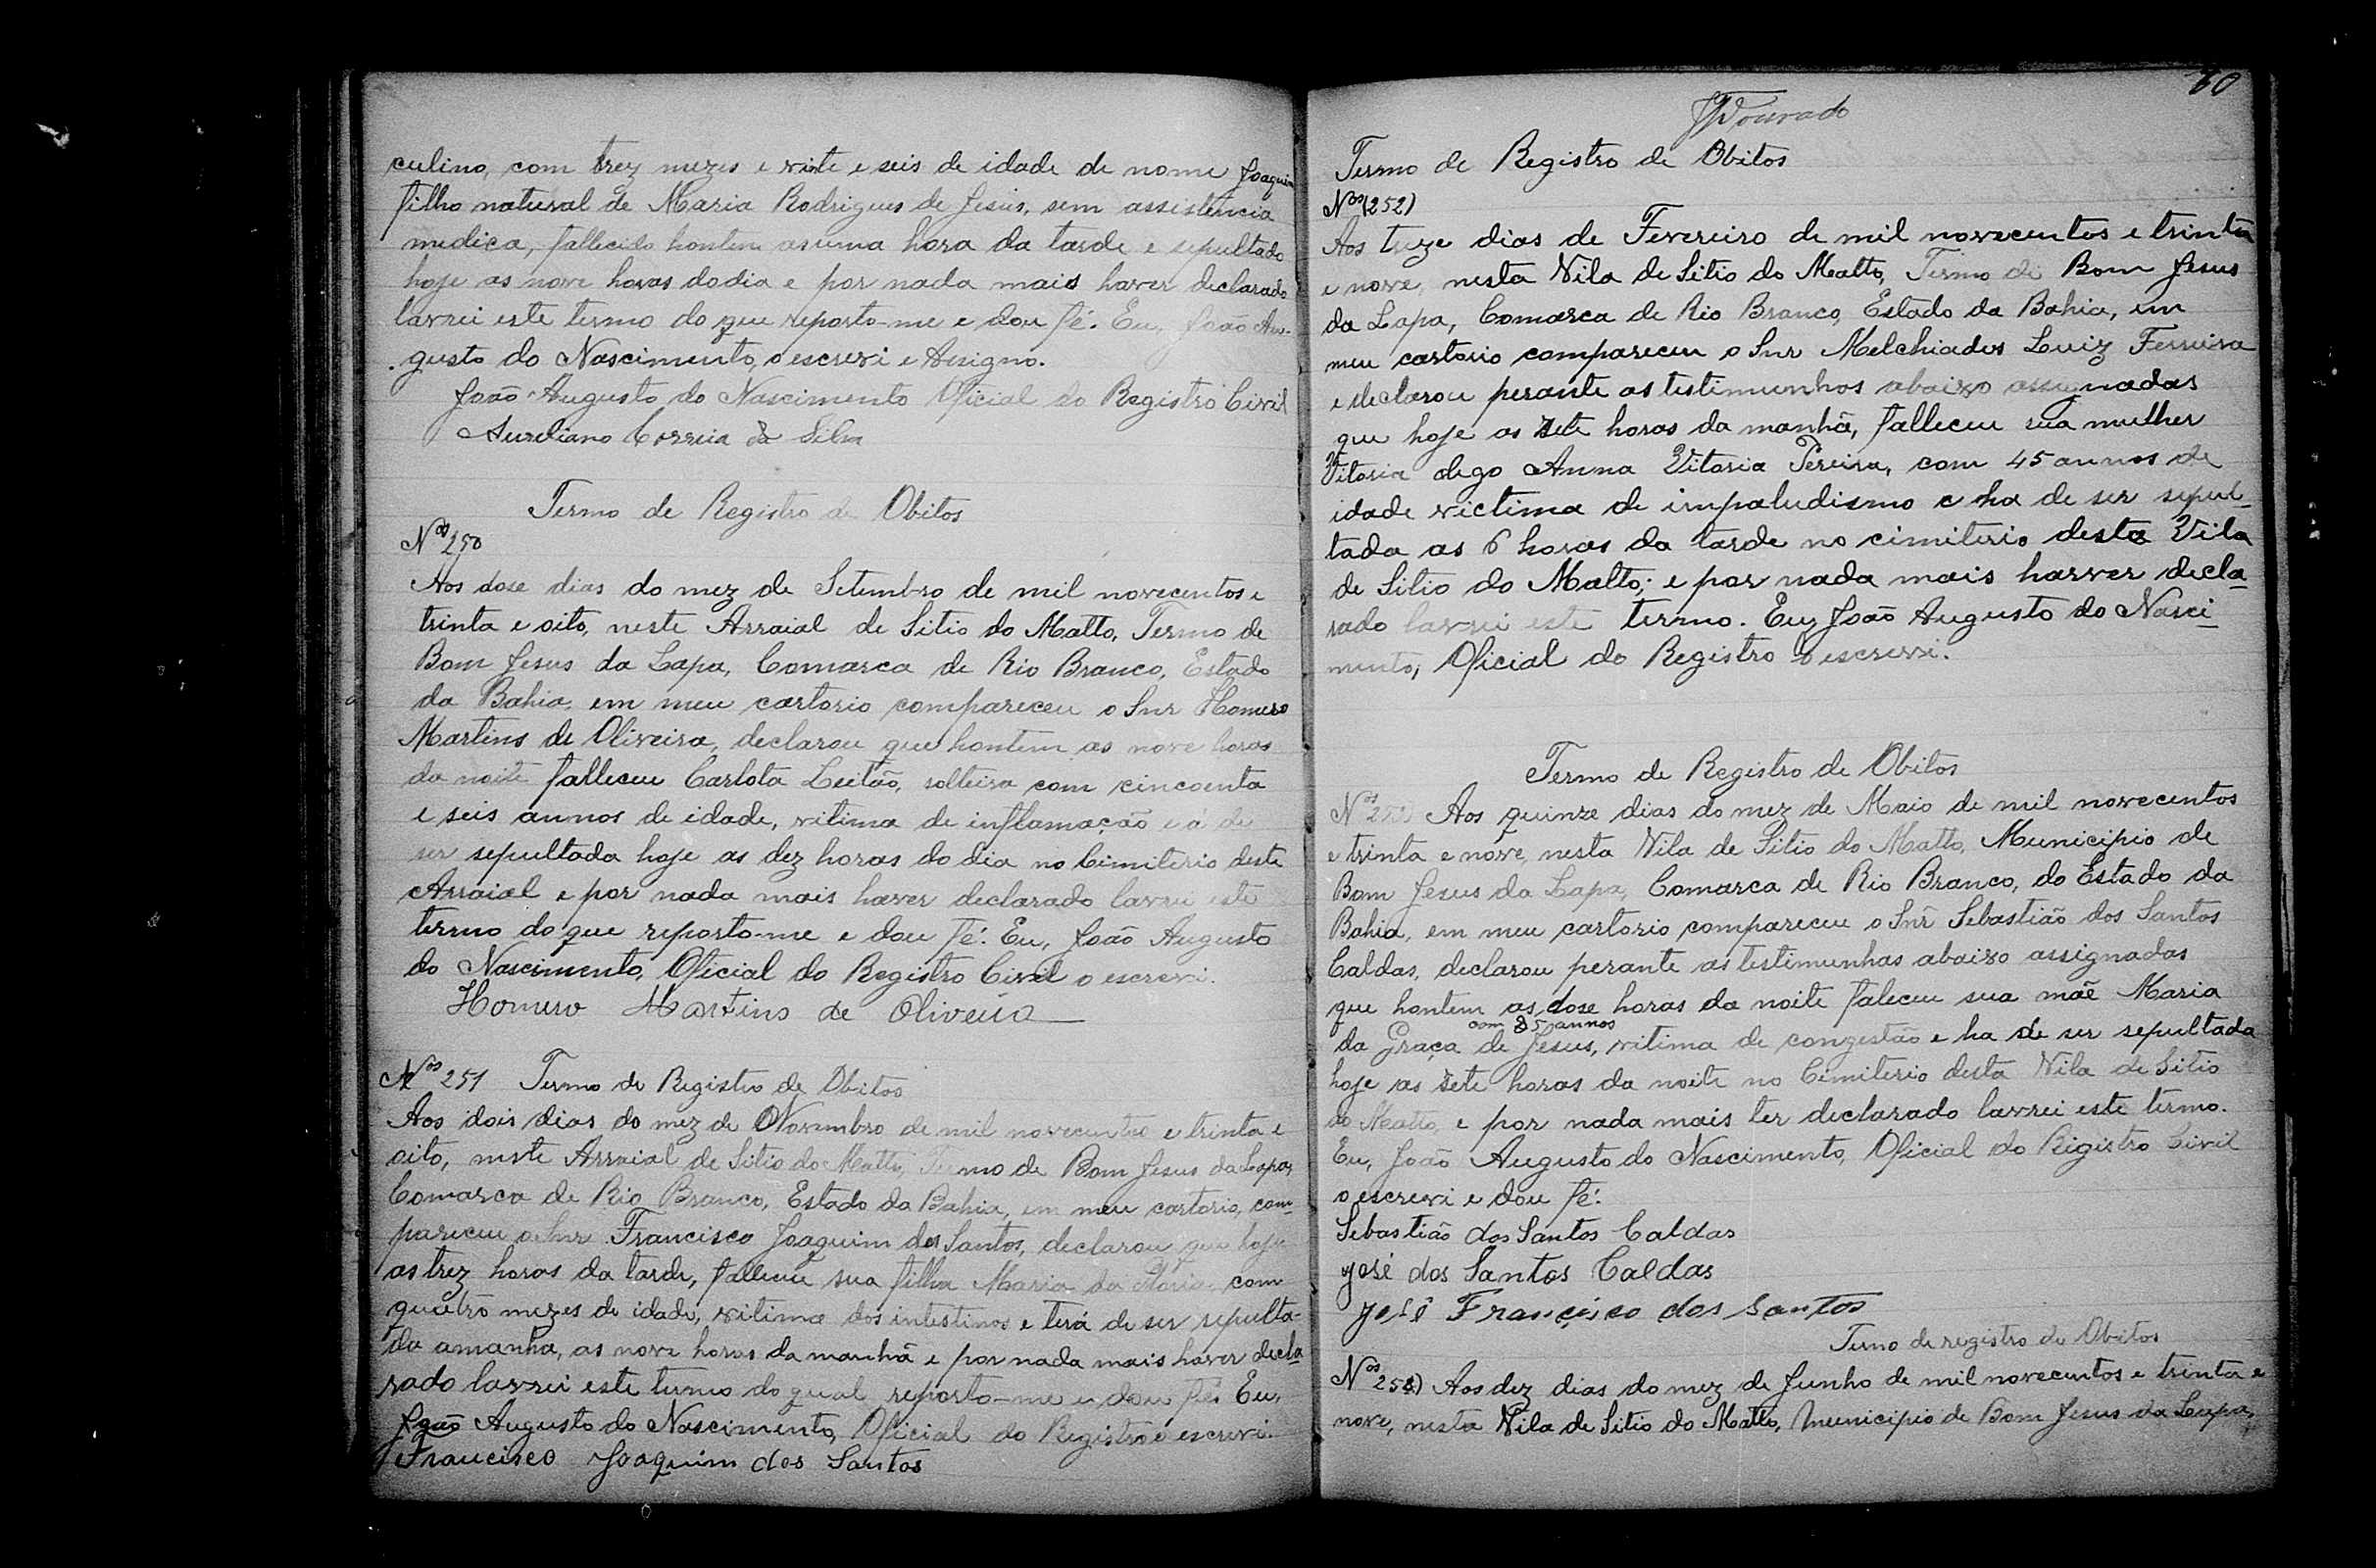 culino, com trez mezes e vinte e seis de idade de nome Joaquim
filho natural de Maria Rodrigues de Jesus, sem assistencia
medica, fallecido hontem as uma hora da tarde e sepultado
hoje as nove horas do dia e por nada mais haver declarado
lavrei este termo do que reporto-me e dou fé. Eu, João Au-
gusto do Nascimento, o escrevi e Assigno.
João Augusto do Nascimento Oficial do Registro Civil
Aureliano Correia da Silva
Termo de Registro de Obitos
Nos 250
Aos dose dias do mez de Setembro de mil novecentos e
trinta e oito, neste Arraial de Sitio do Matto, Termo de
Bom Jesus da Lapa, Comarca de Rio Branco, Estado
da Bahia, em meu cartorio compareceu o Snr Homero
Martins de Oliveira, declarou que hontem as nove horas
da noite falleceu Carlota Leitão, solteira com cincoenta
e seis annos de idade, vitima de inflamação e á de
ser sepultada hoje as dez horas do dia no Cimiterio deste
Arraial e por nada mais haver declarado lavrei este
termo do que reporto-me e dou fé. Eu, João Augusto
do Nascimento, Oficial do Registro Civil o escrevi.
Homero Martins de Oliveira
Nos 251 Termo de Registro de Obitos
Aos dois dias do mez de Novembro de mil novecentos e trinta e
oito, neste Arraial de Sitio do Matto, Termo de Bom Jesus da Lapa,
Comarca de Rio Branco, Estado da Bahia, em meu cartorio, com-
pareceu o Snr Francisco Joaquim dos Santos, declarou que hoje
as trez horas da tarde, falleceu sua filha Maria da Gloria, com
quatro mezes de idade, vitima dos intestinos e terá de ser sepulta-
da amanha, as nove horas da manhã e por nada mais haver decla
rado lavrei este termo do qual reporto-me e dou fé. Eu,
João Augusto do Nascimento, Oficial do Registro o escrevi.
Francisco Joaquim dos Santos
60
Dourado
Termo de Registro de Obitos
Nos (252)
Aos treze dias de Fevereiro de mil novecentos e trinta
e nove, nesta Vila de Sitio do Matto, Termo de Bom Jesus
da Lapa, Comarca de Rio Branco, Estado da Bahia, em
meu cartorio compareceu o Snr Melchiades Luiz Ferreira
e declarou perante as testimunhos abaixo assignadas
que hoje as sete horas da manhã, falleceu sua mulher
Vitoria digo Anna Vitoria Pereira, com 45 annos de
idade victima de impaludismo e ha de ser sepul-
tada as 6 horas da tarde no cimiterio desta Vila
de Sitio do Matto; e por nada mais harver decla-
rado lavrei este termo. Eu, João Augusto do Nasci-
mento, Oficial do Registro o escrevi.
Termo de Registro de Obitos
Nos Aos quinze dias do mez de Maio de mil novecentos
e trinta e nove, nesta Vila de Sitio do Matto, Municipio de
Bom Jesus da Lapa, Comarca de Rio Branco, do Estado da
Bahia, em meu cartorio compareceu o Snr Sebastião dos Santos
Caldas, declarou perante as testimunhas abaixo assignadas
que hontem as dose horas da noite faleceu sua mãe Maria
com 85 annos
da Graça de Jesus, vitima de congestão e ha de ser sepultada
hoje as sete horas da noite no Cimiterio desta Vila de Sitio
do Matto, e por nada mais ter declarado lavrei este termo.
Eu, João Augusto do Nascimento, Oficial do Rigistro Civil
o escrevi e dou fé.
Sebastião dos Santos Caldas
José dos Santos Caldas
José Francisco dos Santos
Termo de registro de Obitos
Nos 254) Aos dez dias do mez de Junho de mil novecentos e trinta e
nove, nesta Vila de Sitio do Matto, Municipio de Bom Jesus da Lapa,